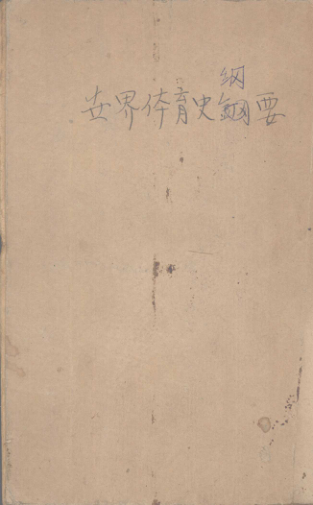 纲
世界体育史鋼要